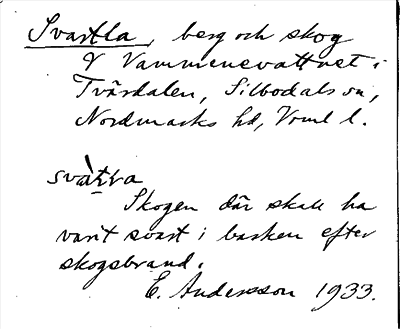 Svartla, berg och skog
V Vammenevattnet i
Tvärdalen, Silbodals sn,
Nordmarks hd, Vrml l.
svàṭra
Skogen där skall ha
varit svart i barken efter
skogsbrand.
E. Andersson 1933.